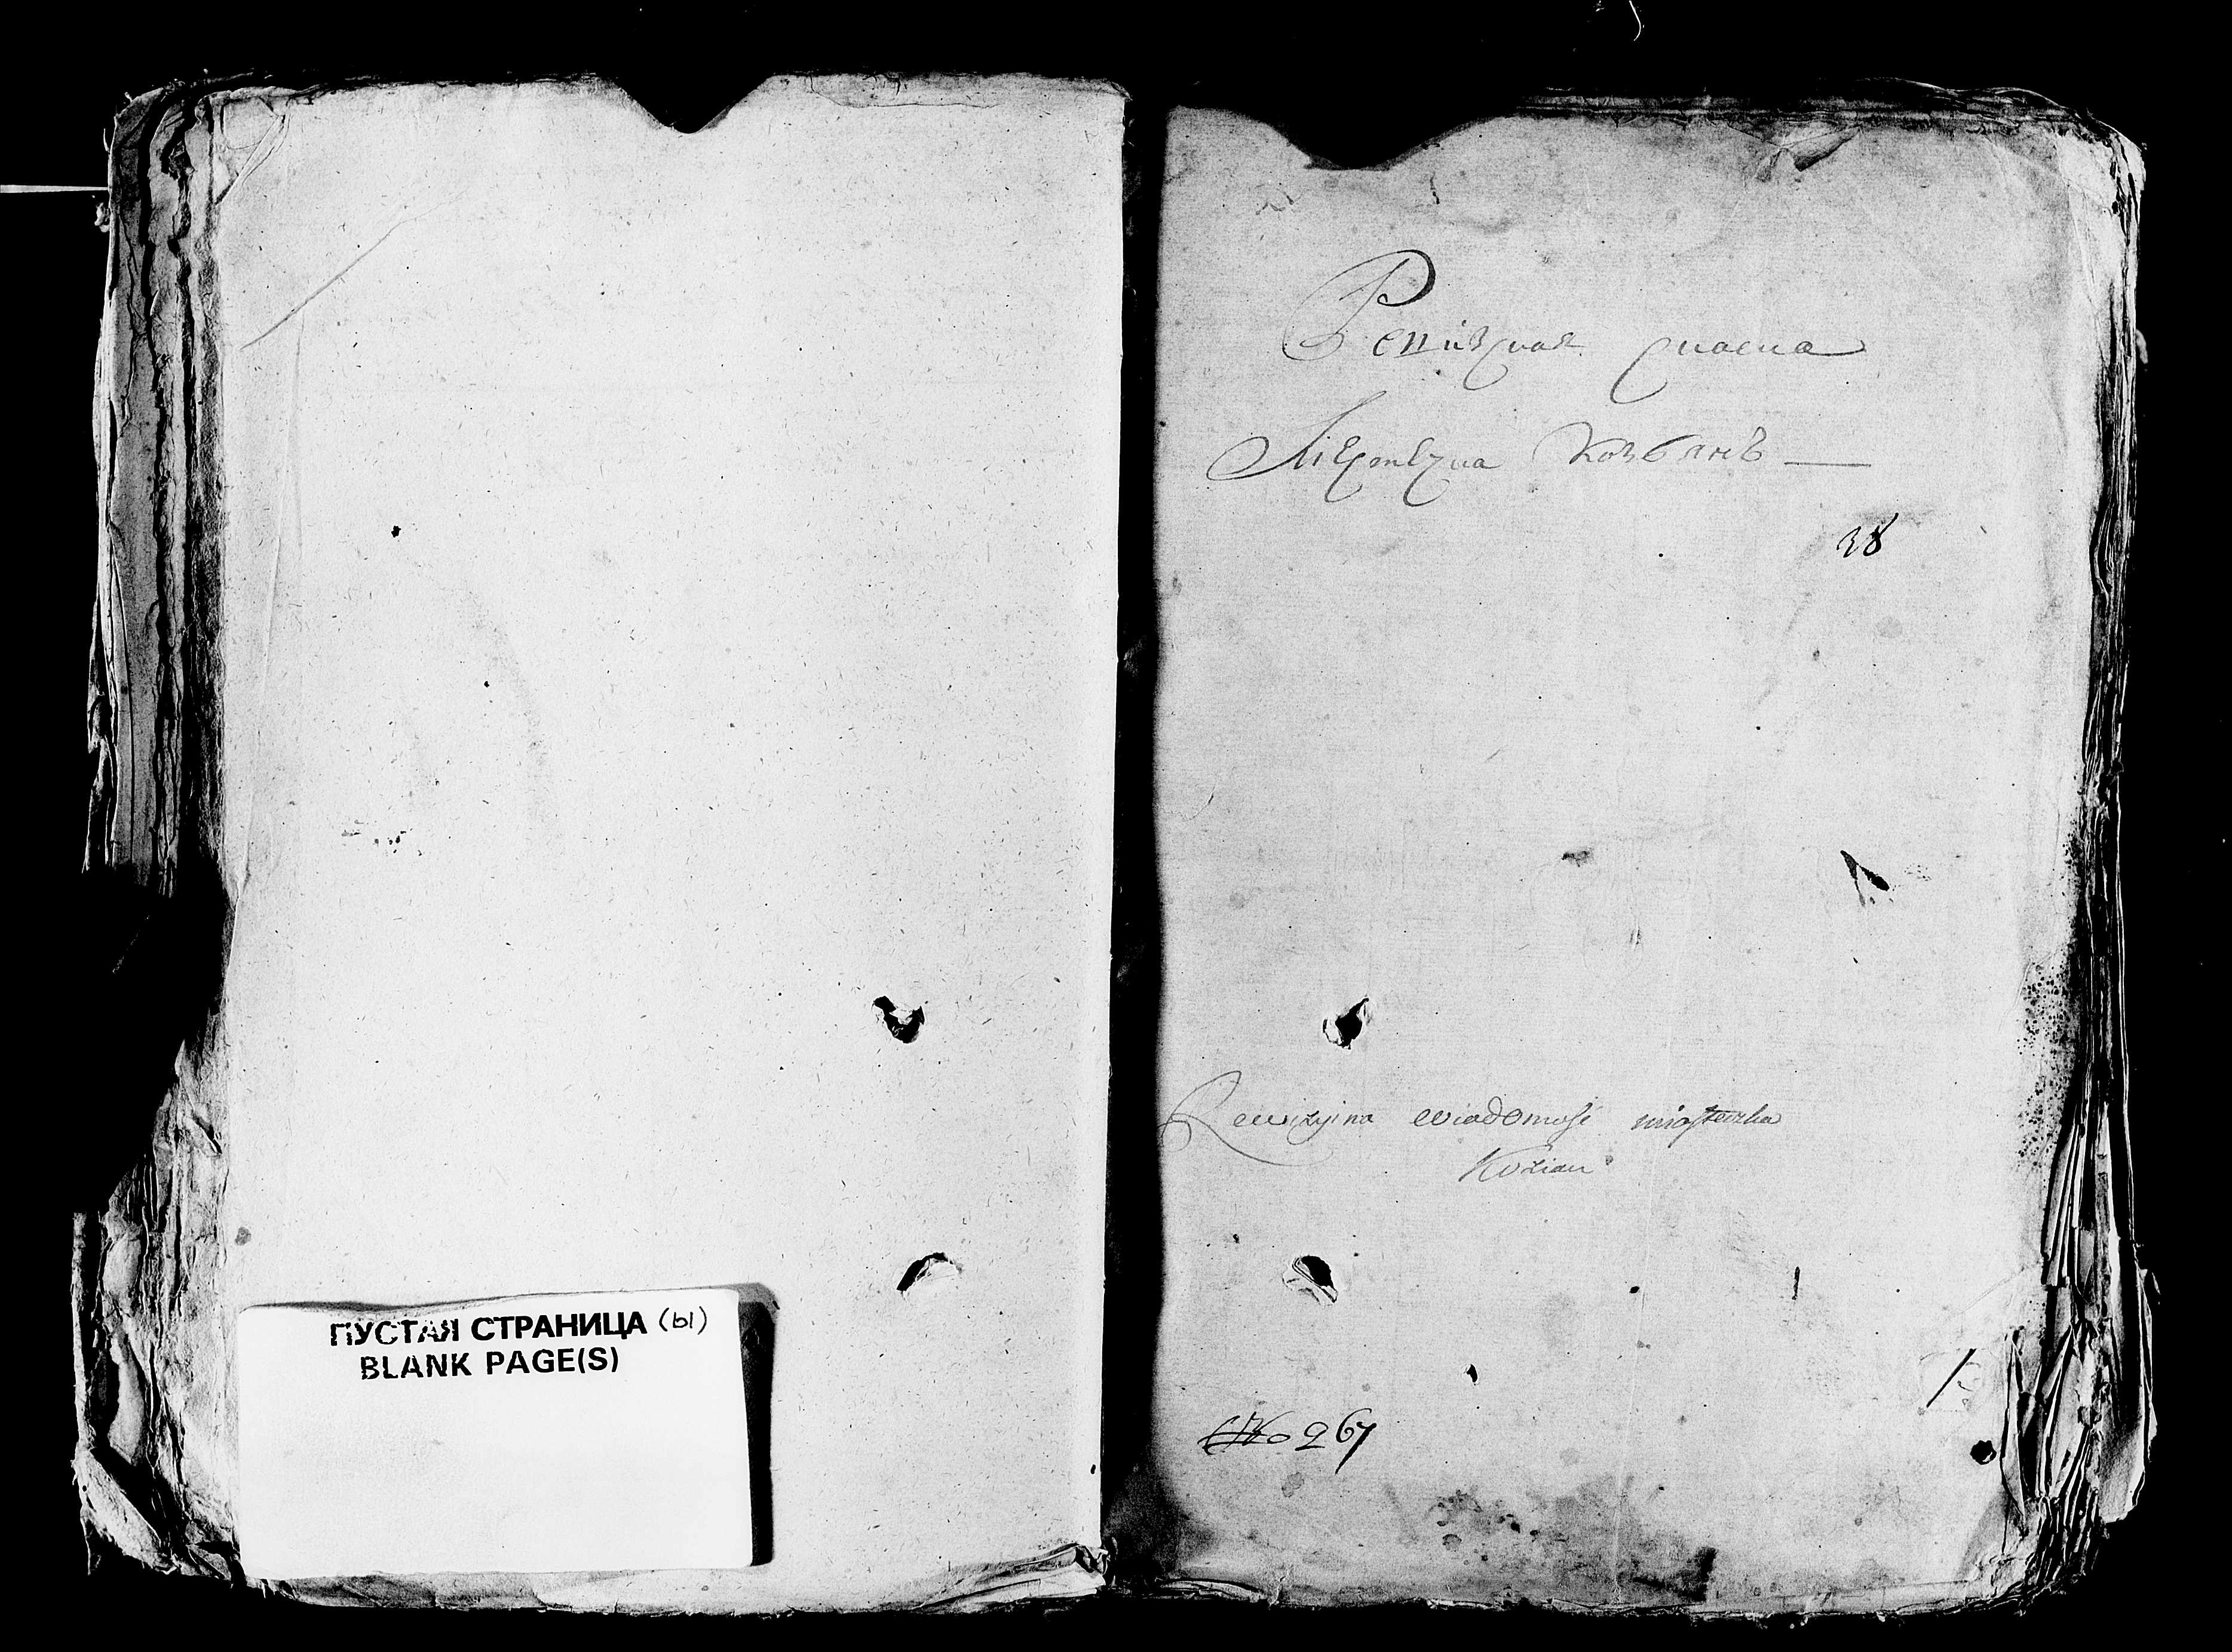 ПУСТАЯ СТРАНИЦА (ы)
BLANK PAGE(S)
Ревизская скаска
Местечка Козянъ —
38
Rewizyina wiadomość miasteczka
Kozian
1
267